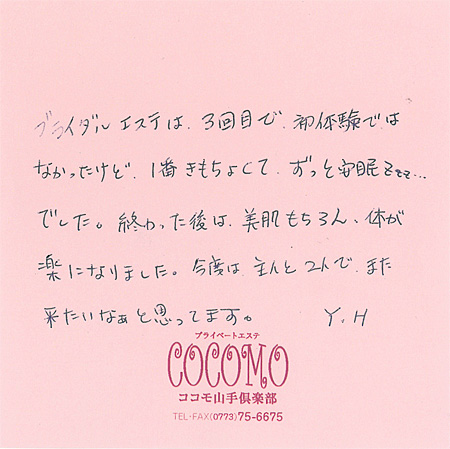 ブライダルエステは、3回目で、初体験では
なかったけど、1番きもちよくて、ずっと安眠Zzzz…
でした。終わった後は、美肌もちろん、体が
楽になりました。今度は、主人と2人で、また
来たいなぁと思ってます。　Y.H
プライベートエステ
COCOMO
ココモ山手倶楽部
TEL・FAX(0773)75-6675